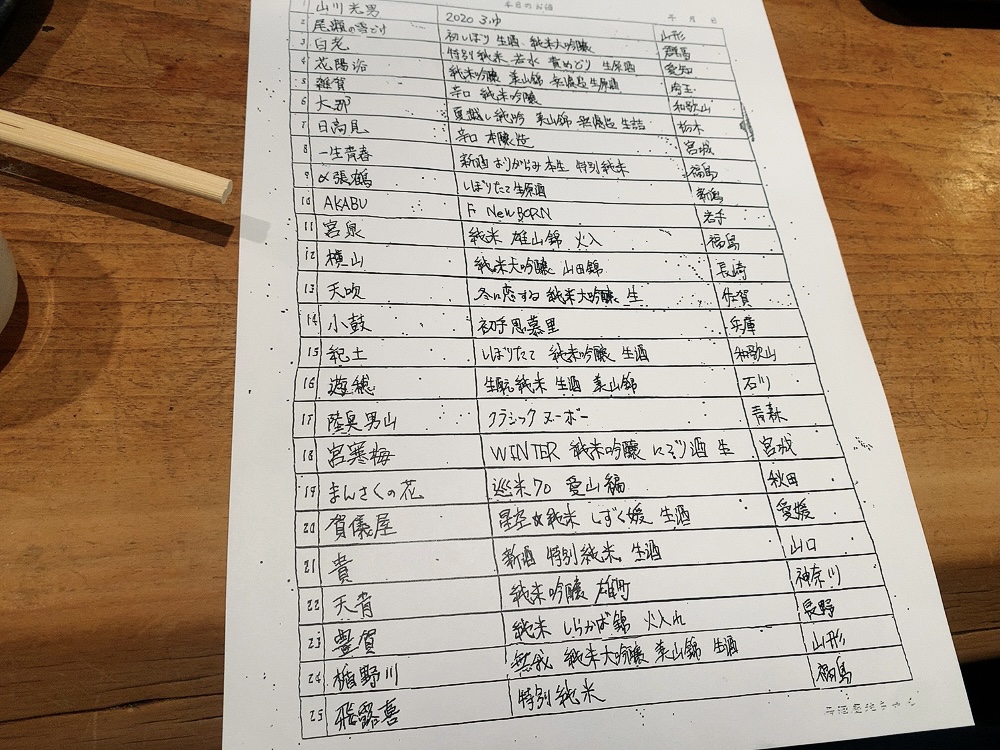 本日のお酒 年 月 日
1 山川光男 2020 ふゆ 山形
2 尾瀬の雪どけ 初しぼり 生酒 純米大吟醸 群馬
3 白老 特別純米 若水 責めどり 生原酒 愛知
4 花陽浴 純米吟醸 美山錦 無濾過生原酒 埼玉
5 雑賀 辛口 純米吟醸 和歌山
6 大那 夏越し純吟 美山錦 無濾過 生詰 栃木
7 日高見 辛口 本醸造 宮城
8 一生青春 新酒 おりがらみ 本生 特別純米 福島
9 〆張鶴 しぼりたて生原酒 新潟
10 AKABU F NewBORN 岩手
11 宮泉 純米 雄山錦 火入 福島
12 横山 純米大吟醸 山田錦 長崎
13 天吹 冬に恋する 純米大吟醸 生 佐賀
14 小鼓 初手思慕里 兵庫
15 紀土 しぼりたて 純米吟醸 生酒 和歌山
16 遊穂 生酛純米 生酒 美山錦 石川
17 陸奥男山 クラシック ヌーボー 青森
18 宮寒梅 WINTER 純米吟醸 にごり酒 生 宮城
19 まんさくの花 巡米70 愛山編 秋田
20 賀儀屋 星空☆純米 しずく媛 生酒 愛媛
21 貴 新酒 特別純米 生酒 山口
22 天青 純米吟醸 雄町 神奈川
23 豊賀 純米 しらかば錦 火入れ 長野
24 楯野川 無我 純米大吟醸 美山錦 生酒 山形
25 飛露喜 特別純米 福島